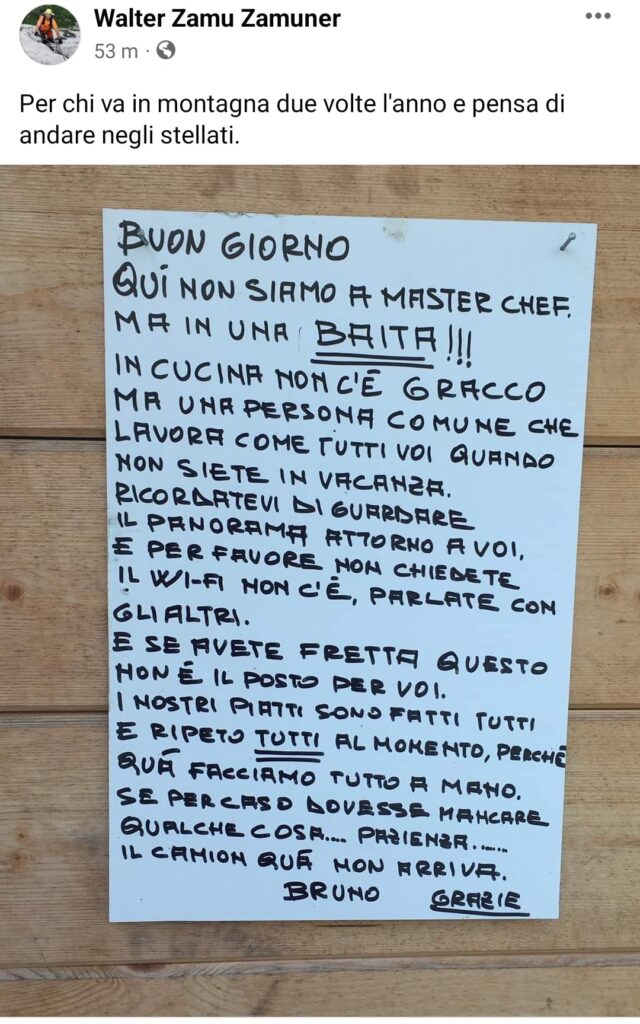 Walter Zamu Zamuner
53 m ·
Per chi va in montagna due volte l'anno e pensa di
andare negli stellati.
BUON GIORNO
QUÍ NON SIAMO A MASTER CHEF.
MA IN UNA BAITA!!!
IN CUCINA NON C'É GRACCO
MA UNA PERSONA COMUNE CHE
LAVORA COME TUTTI VOI QUANDO
NON SIETE IN VACANZA.
RICORDATEVI DI GUARDARE
IL PANORAMA ATTORNO A VOI,
E PER FAVORE NON CHIEDETE
IL WI-FI NON C'É, PARLATE CON
GLI ALTRI.
E SE AVETE FRETTA QUESTO
NON É IL POSTO PER VOI.
I NOSTRI PIATTI SONO FATTI TUTTI
E RIPETO TUTTI AL MOMENTO, PERCHÉ
QUÁ FACCIAMO TUTTO A MANO.
SE PER CASO DOVESSE MANCARE
QUALCHE COSA.... PAZIENZA......
IL CAMION QUÁ NON ARRIVA.
BRUNO GRAZIE